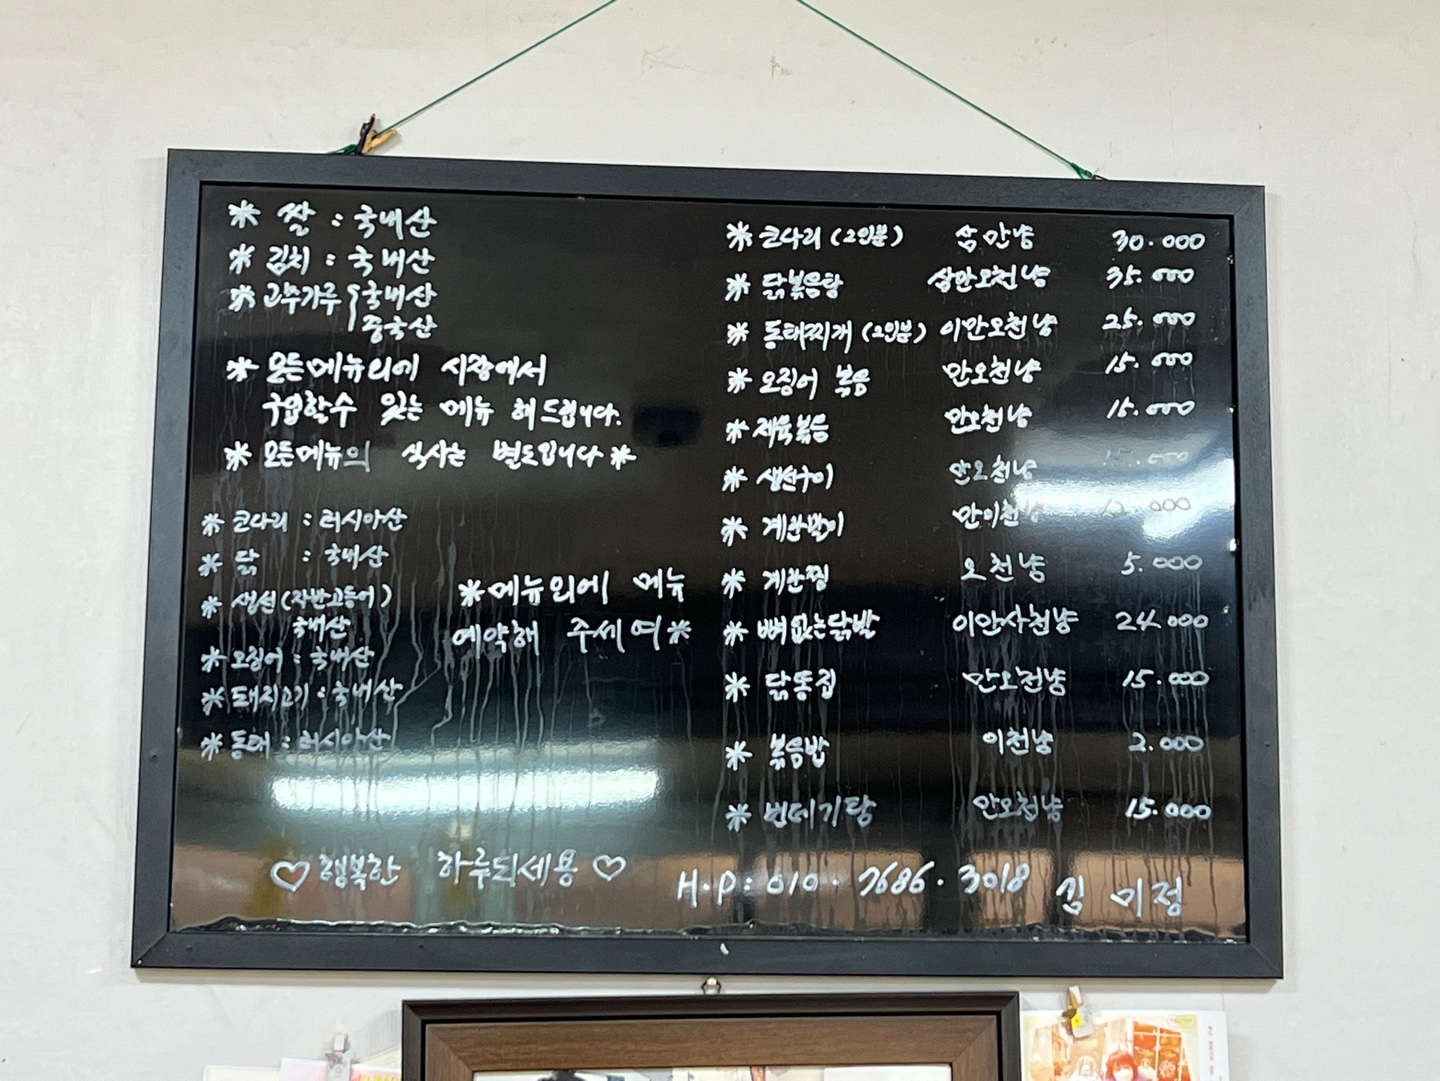 * 쌀 : 국내산
* 김치 : 국내산
* 고추가루 { 국내산
중국산
* 모든메뉴외에 시장에서
구입할수 있는 메뉴 해드립니다.
* 모든메뉴의 식사는 별도입니다 *
* 코다리 : 러시아산
* 닭 : 국내산
* 생선 (자반고등어)
국내산
* 오징어 : 국내산
* 돼지고기 : 국내산
* 동태 : 러시아산
* 메뉴외에 메뉴
예약해 주세여 *
♡ 행복한 하루되세용 ♡
* 코다리 (2인분) 삼만냥 30.000
* 닭볶음탕 삼만오천냥 35.000
* 동태찌개 (2인분) 이만오천냥 25.000
* 오징어 볶음 만오천냥 15.000
* 제육볶음 만오천냥 15.000
* 생선구이 만오천냥 15.000
* 계란말이 만이천냥 12.000
* 계란찜 오천냥 5.000
* 뼈없는닭발 이만사천냥 24.000
* 닭똥집 만오천냥 15.000
* 볶음밥 이천냥 2.000
* 번데기탕 만오천냥 15.000
H.P : 010. 7686. 3018 김 미정